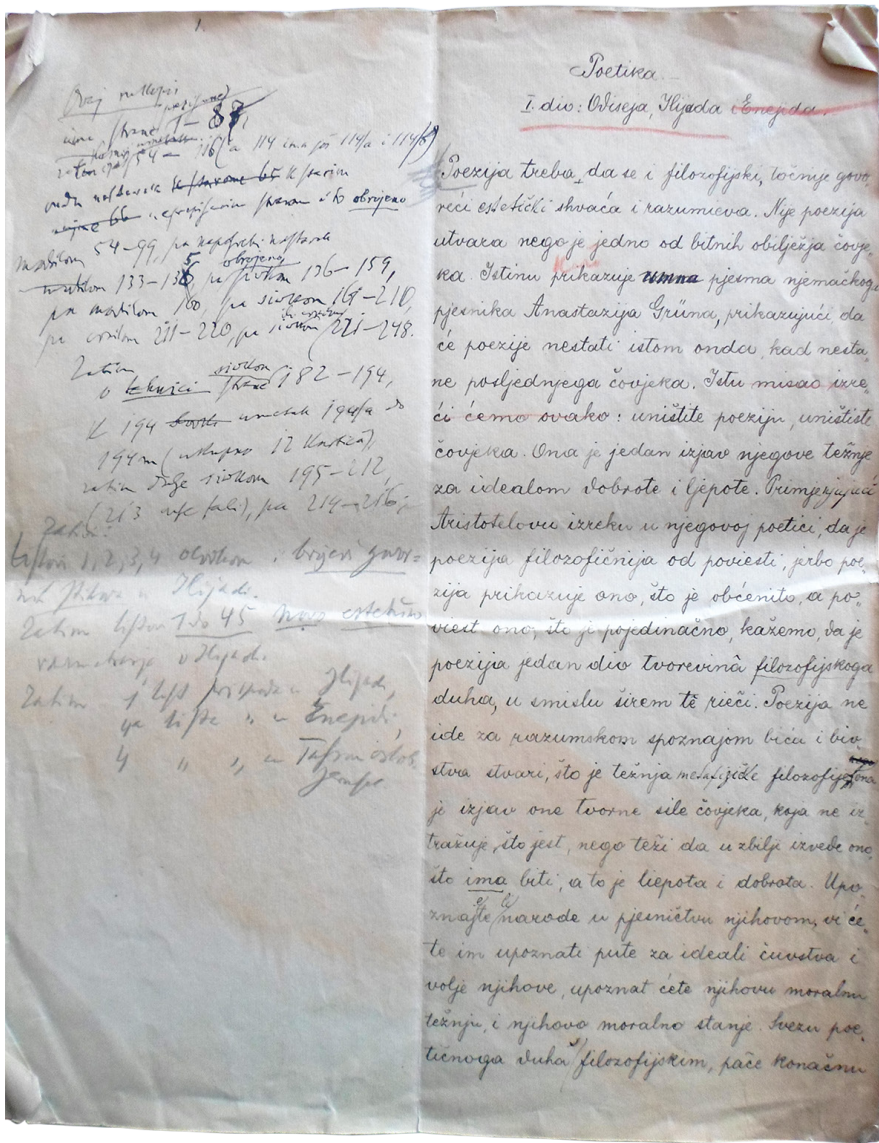 1.
Ovaj rukopis
ima strane 1 – 87,
54 – 116 (a 114 ima još 114/a i 114/b)
onda nastavak k starim
strane i to obrojeno
54–99, pa
133–135, pa 136–159,
pa 160, pa sivkom 161–210,
pa crnilom 211–220, pa sivkom (221–248.
Zatim
o sivkom strane (182–194,
K 194 umetak 194/a do
194m (ukupno 12 Kartica),
zatim dalje sivkom 195–212,
(213 nije fali), pa 214–216;
Zatim:
listovi 1, 2, 3, 4 i brojevi
u Ilijadi.
Zatim listovi 1 do 45 estetična
razmatranja o Ilijadi.
Zatim 1 list Ilijadi,
lista " u Enejidi,
4 " " u
Poetika
I. dio: Odiseja, Ilijada i Enejida.
Poezija treba da se i filozofijski, točnije govo-
reći estetički shvaća i razumieva. Nije poezija
utvara nego je jedno od bitnih obilježja čovje-
ka. Istinu prikazuje umna pjesma njemačkoga
pjesnika Anastazija Grüna, prikazujući, da
će poezije nestati istom onda, kad nesta-
ne posljednjega čovjeka. Istu misao izre-
ći ćemo ovako: uništite poeziju, uništiste
čovjeka. Ona je jedan izjav njegove težnje
za idealom dobrote i ljepote. Primjenjujući
Aristotelovu izreku u njegovoj poetici, da je
poezija filozofičnija od poviesti, jerbo poe-
zija prikazuje ono, što je obćenito, a po-
viest ono, što je pojedinačno, kažemo, da je
poezija jedan dio tvorevinâ filozofijskoga
duha, u smislu širem te rieči. Poezija ne
ide za razumskom spoznajom bića i biv-
stva stvari, što je težnja metafizičke filozofije, ona
je izjav one tvorne sile čovjeka, koja ne iz-
tražuje, što jest, nego teži da u zbilji izvede ono,
što ima biti, a to je liepota i dobrota. Upo-
znajte narode u pjesničtvu njihovom, vi će-
te im upoznati pute za ideali čuvstva i
volje njihove, upoznat ćete njihovu moralnu
težnju, i njihovo moralno stanje. Svezu poe-
tičnoga duha s filozofijskim, pače konačnu